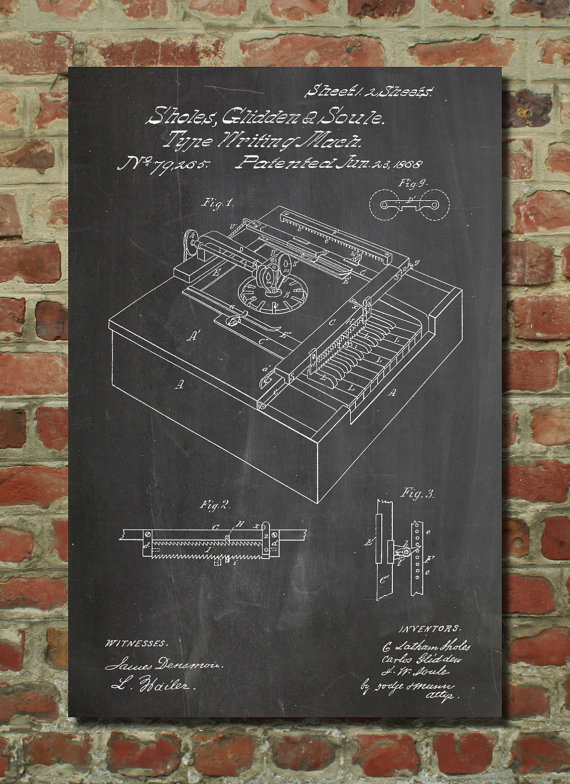 Sheet 1. 2 Sheets.
Sholes, Glidden & Soule.
Type Writing Mach.
No. 79,265. Patented Jun. 23, 1868
Fig. 9.
Fig. 1.
E
E
C
E'
C
A'
A
L
A
Fig. 2.
Fig. 3.
G H x
I
i
E'
F'
e
C'
e
WITNESSES.
James Densmore
L. Hailer.
INVENTORS.
C Latham Sholes
Carlos Glidden
S. W. Soule
by Dodge & Munn
Attys.